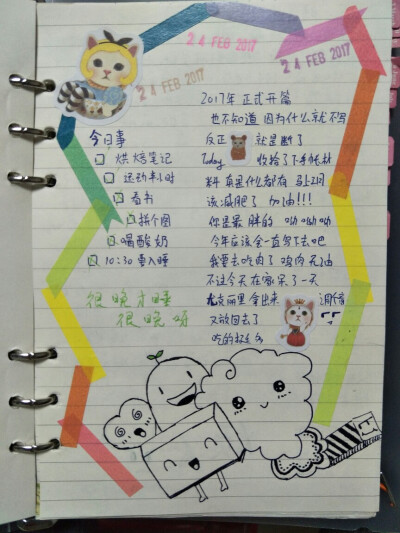 24 FEB 2017
24 FEB 2017
24 FEB 2017
2017年 正式开篇
也不知道 因为什么就不写
反正 就是断了
Today 收拾了下手帐材
料 真是什么都有 马上3月
该减肥了 加油!!!
你是最胖的 呦呦呦
今年应该会一直写下去吧
我要去吃肉了 鸡肉无油
不过今天在家呆了一天
尤克丽里拿出来 调音
又放回去了
吃的
今日事
□ 烘焙笔记
□ 运动半小时
□ 看书
□ 拼个图
□ 喝酸奶
□ 10:30要入睡
很晚才睡
很晚呀